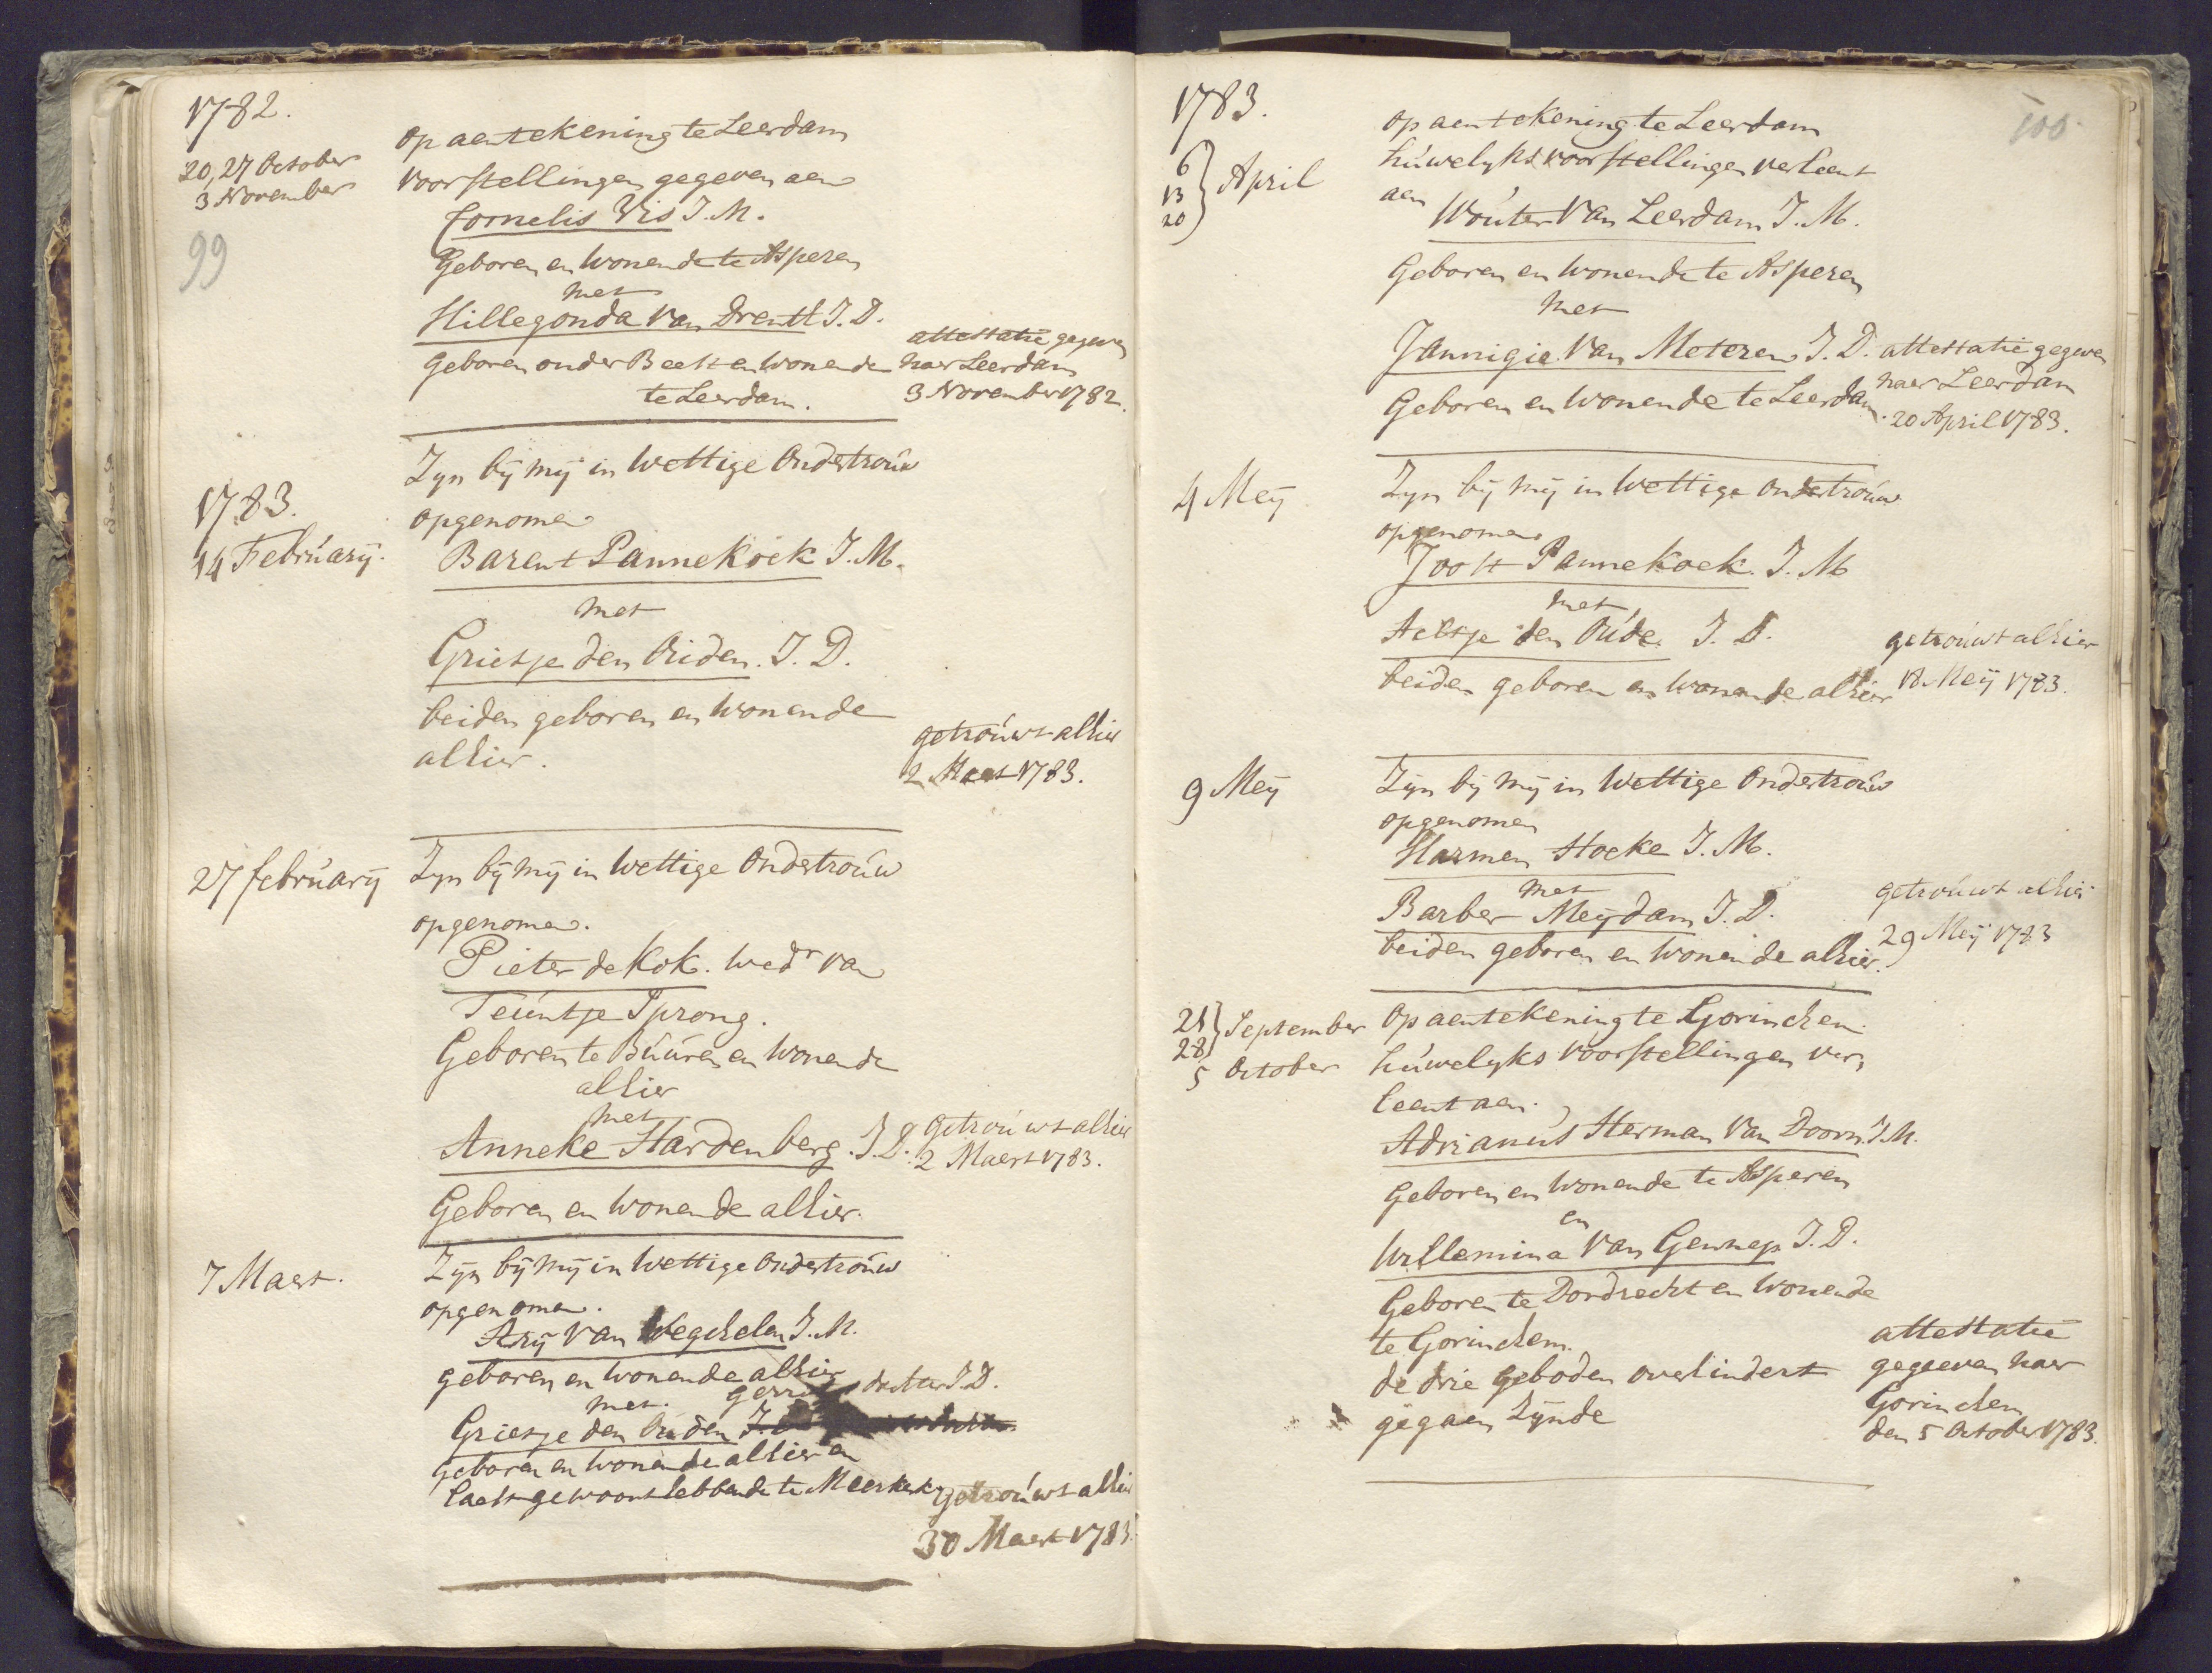 1782.
20, 27 October
3 November
99
op aentekening te Leerdam
voorstellingen gegeven aen
Cornelis Vis J. M.
Geboren en wonende te Asperen
met
Hillegonda van Drentl J. D.
Geboren onder Beest en wonende
te Leerdam.
attestatie gegeven
naer Leerdam
3 November 1782.
1783.
14 Februarij.
Zyn bij mij in wettige Ondertrouw
opgenomen
Barent Pannekoek J. M.
met
Grietje den Ouden. J. D.
beiden geboren en wonende
alhier.
getrouwt alhier
2 Maert 1783.
27 februarij
Zyn bij mij in wettige Ondertrouw
opgenomen.
Pieter de Kok. wedr van
Teuntje Sprong.
Geboren te Buuren en wonende
alhier
met
Anneke Hardenberg. J. D.
Geboren en wonende alhier.
Getrouwt alhier
2 Maert 1783.
7 Maert.
Zyn bij mij in wettige Ondertrouw
opgenomen.
Arij van Wegchelen J. M.
geboren en wonende alhier
met. dochter J. D.
Grietje den Ouden
geboren en wonende alhier en
laest gewoont hebbende te Meerkerk
getrouwt alhier
30 Maert 1783.
1783.
100.
6
13
20
April
op aentekening te Leerdam
huwelyks voorstellingen verleent
aen
Wouter van Leerdam J. M.
Geboren en wonende te Asperen
met
Jannigje van Meteren J. D.
Geboren en wonende te Leerdam.
attestatie gegeven
naer Leerdam
20 April 1783.
4 Meij
Zyn bij mij in wettige ondertrouw
opgenomen
Joost Pannekoek. J. M
met
Aeltje den Oude. J. D.
beiden geboren en wonende alhier
getrouwt alhier
18 Meij 1783.
9 Meij
Zyn bij mij in wettige Ondertrouw
opgenomen
Harmen Hoeke J. M.
met
Barber Meijdam J. D.
beiden geboren en wonende alhier.
getrouwt alhier
29 Meij 1783
21
28
September
5 October
Op aentekening te Gorinchem
huwelyks voorstellingen ver,
leent aen.
Adrianus Herman van Doorn J. M.
Geboren en wonende te Asperen
en
Willemina van Gennep J. D.
Geboren te Dordrecht en wonende
te Gorinchem.
de drie geboden overhindert
gegaen zynde
attestatie
gegeven naer
Gorinchem
den 5 October 1783.